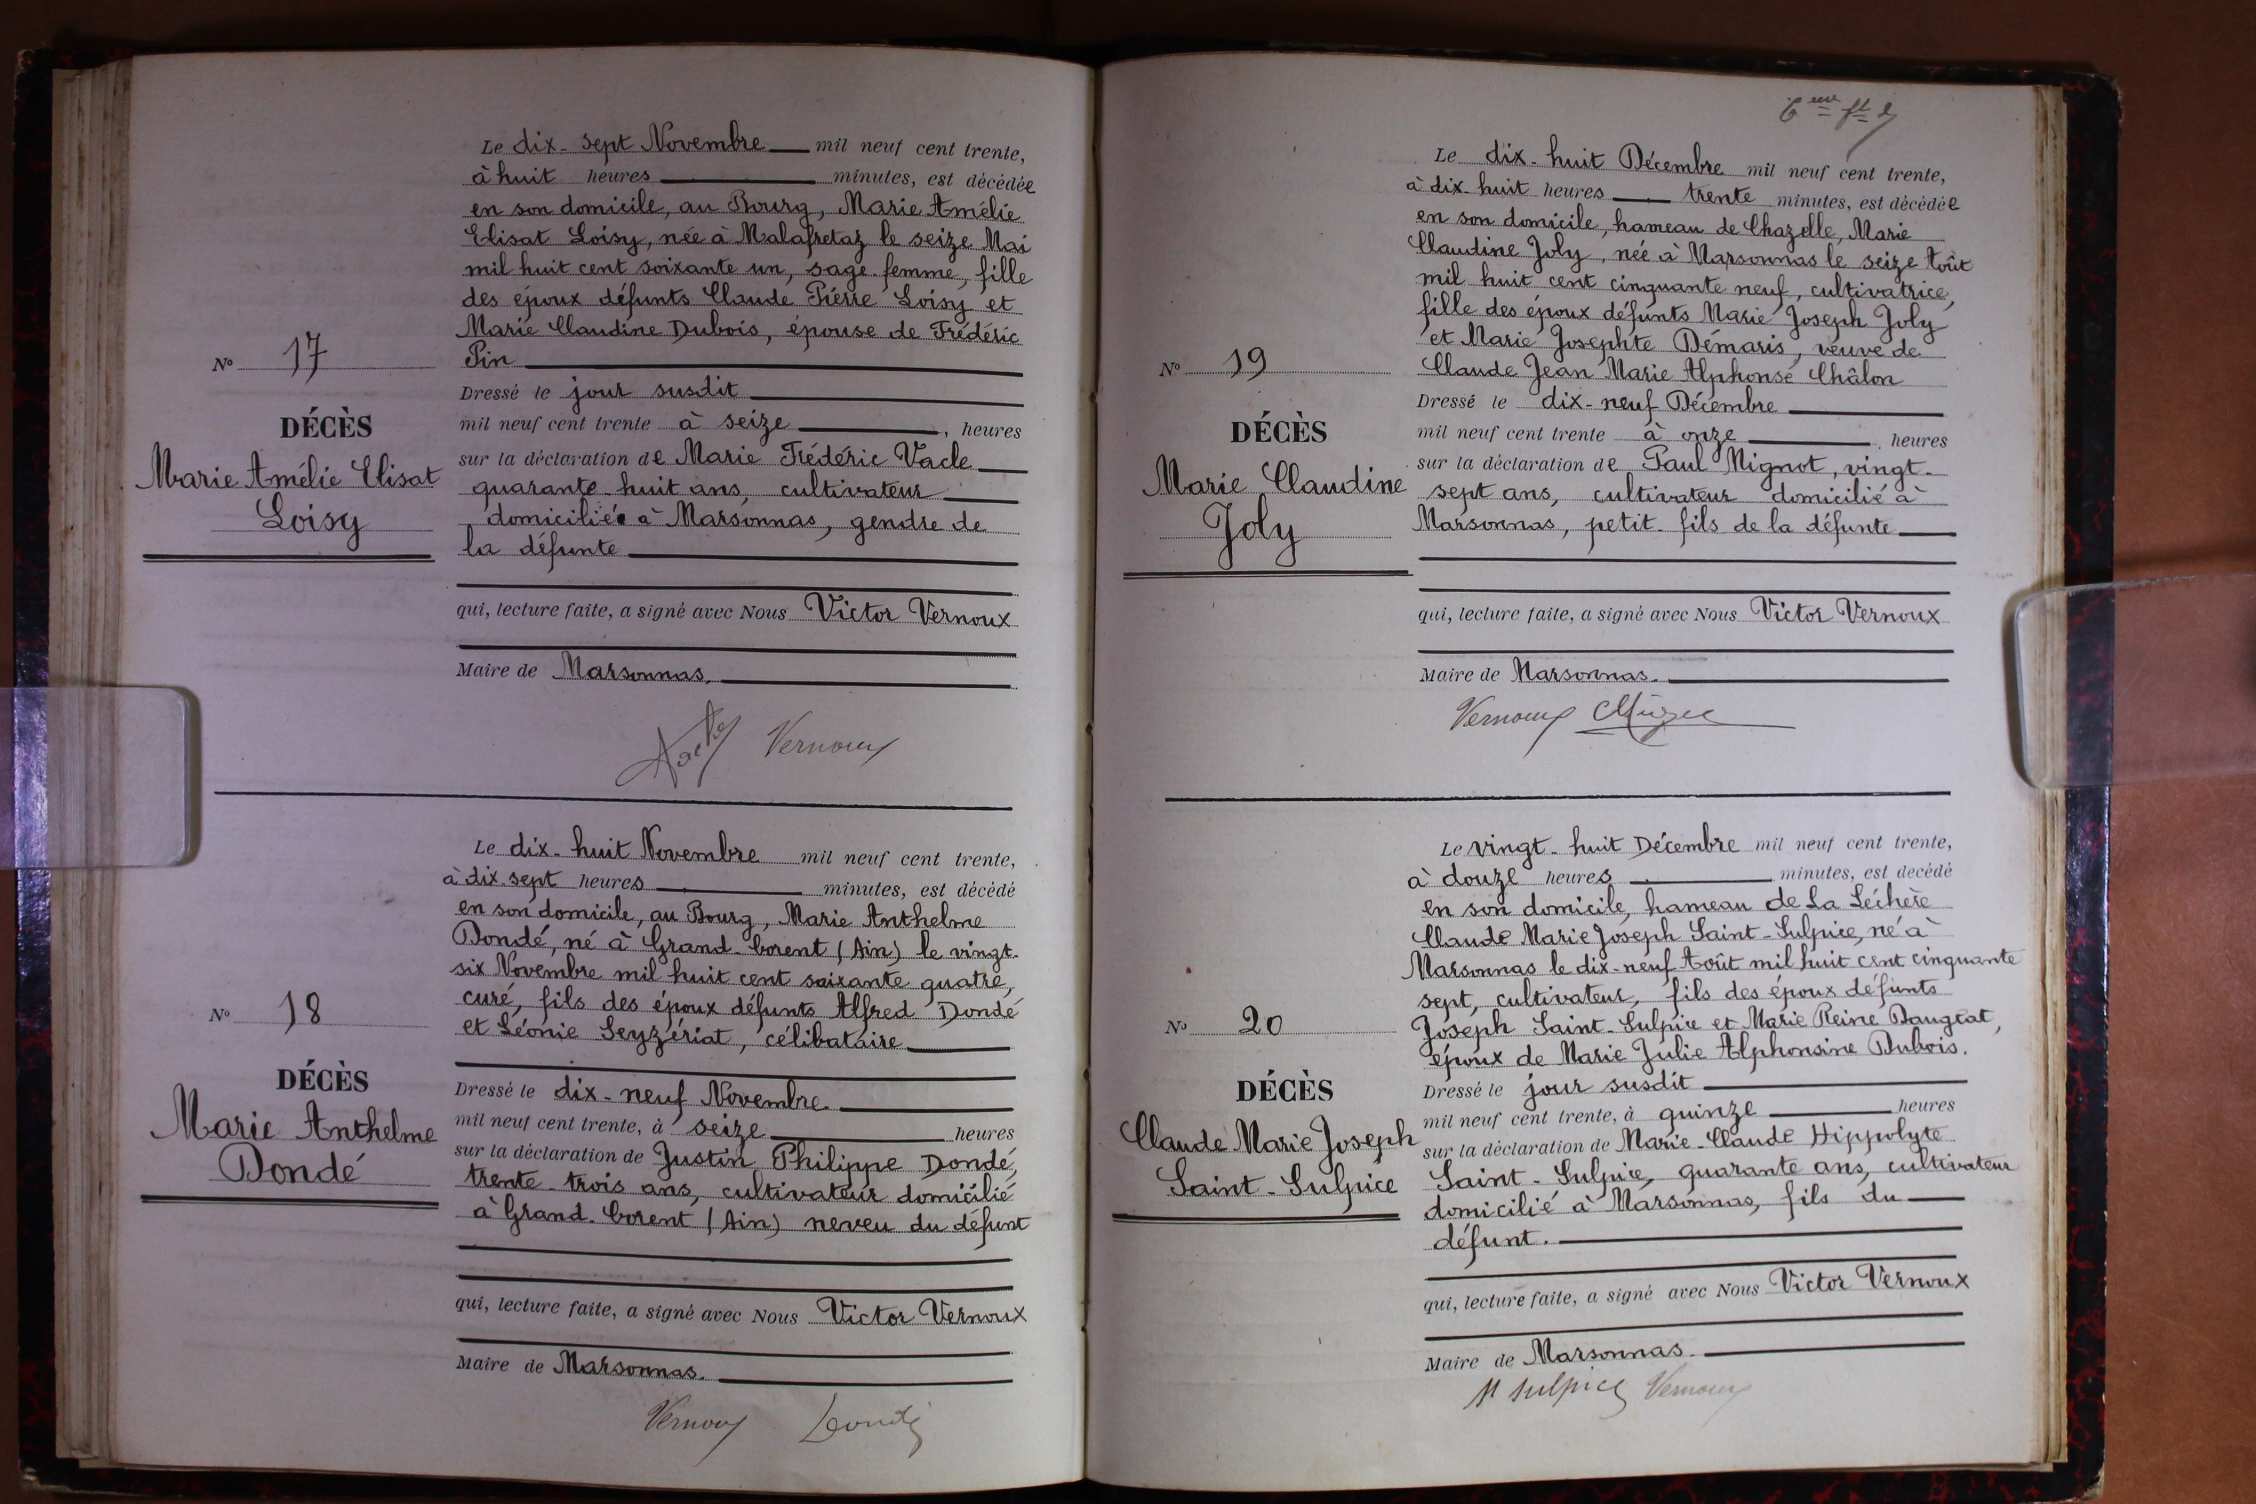 Le dix-sept Novembre mil neuf cent trente,
à huit heures minutes, est décédée
en son domicile, au Bourg, Marie Amélie
Elisat Loisy, née à Malafretaz le seize Mai
mil huit cent soixante un, sage-femme, fille
des époux défunts Claude Pierre Loisy et
Marie Claudine Dubois, épouse de Frédéric
Pin
Nº 17
Dressé le jour susdit
DÉCÈS
mil neuf cent trente à seize, heures
Marie Amélie Elisat
Loisy
sur la déclaration de Marie Frédéric Vacle
quarante-huit ans, cultivateur
domicilié à Marsonnas, gendre de
la défunte
qui, lecture faite, a signé avec Nous Victor Vernoux
Maire de Marsonnas.
Vernoux
Le dix-huit Novembre mil neuf cent trente,
à dix-sept heures minutes, est décédé
en son domicile, au Bourg, Marie Anthelme
Dondé, né à Grand-Corent (Ain) le vingt-
six Novembre mil huit cent soixante quatre,
curé, fils des époux défunts Alfred Dondé
et Léonie Seyzériat, célibataire
Nº 18
DÉCÈS
Marie Anthelme
Dondé
Dressé le dix-neuf Novembre
mil neuf cent trente, à seize heures
sur la déclaration de Justin Philippe Dondé,
trente-trois ans, cultivateur domicilié
à Grand-Corent (Ain) neveu du défunt
qui, lecture faite, a signé avec Nous Victor Vernoux
Maire de Marsonnas.
Vernoux Dondé
Le dix-huit Décembre mil neuf cent trente,
à dix-huit heures trente minutes, est décédée
en son domicile, hameau de Chazelle, Marie
Claudine Joly, née à Marsonnas le seize Août
mil huit cent cinquante neuf, cultivatrice,
fille des époux défunts Marie Joseph Joly
et Marie Josephte Démaris, veuve de
Claude Jean Marie Alphonse Châlon
Nº 19
DÉCÈS
Marie Claudine
Joly
Dressé le dix-neuf Décembre
mil neuf cent trente à onze heures
sur la déclaration de Paul Mignot, vingt-
sept ans, cultivateur domicilié à
Marsonnas, petit-fils de la défunte
qui, lecture faite, a signé avec Nous Victor Vernoux
Maire de Marsonnas.
Vernoux
Le vingt-huit Décembre mil neuf cent trente,
à douze heures minutes, est decédé
en son domicile, hameau de La Léchère
Claude Marie Joseph Saint-Sulpice, né à
Marsonnas le dix-neuf Août mil huit cent cinquante
sept, cultivateur, fils des époux défunts
Joseph Saint-Sulpice et Marie Reine Daugeat,
époux de Marie Julie Alphonsine Dubois.
Nº 20
DÉCÈS
Claude Marie Joseph
Saint-Sulpice
Dressé le jour susdit
mil neuf cent trente, à quinze heures
sur la déclaration de Marie-Claude Hippolyte
Saint-Sulpice, quarante ans, cultivateur
domicilié à Marsonnas, fils du
défunt.
qui, lecture faite, a signé avec Nous Victor Vernoux
Maire de Marsonnas.
St Sulpice Vernoux